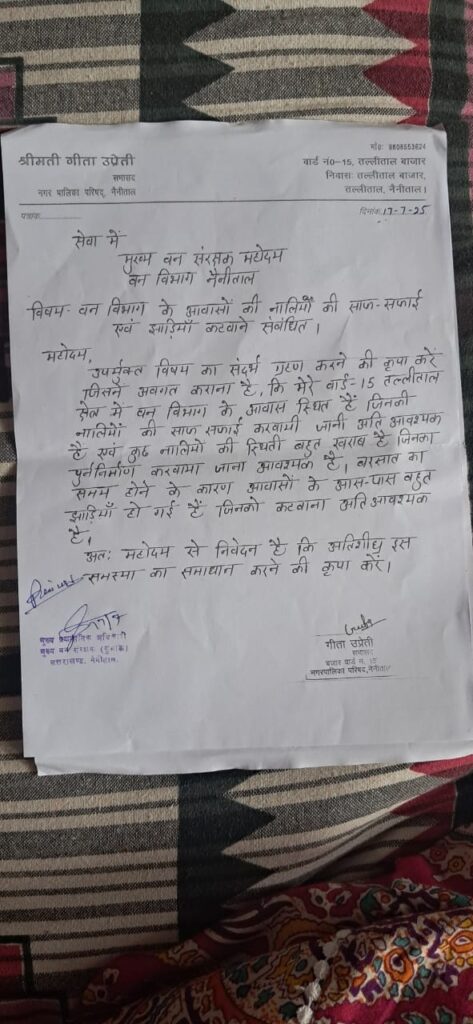 मो0: 9808553624
श्रीमती गीता उप्रेती
सभासद
नगर पालिका परिषद, नैनीताल
वार्ड नं0–15, तल्लीताल बाजार
निवासः तल्लीताल बाजार,
तल्लीताल, नैनीताल।
पत्रांक
दिनांक 17-7-25
सेवा में
मुख्य वन संरक्षक महोदय
वन विभाग नैनीताल
विषय- वन विभाग के आवासों की नालियों की साफ-सफाई
एवं झाड़ियाँ कटवाने संबंधित।
महोदय,
उपर्युक्त विषय का संदर्भ ग्रहण करने की कृपा करें
जिसमें अवगत कराना है, कि मेरे वार्ड-15 तल्लीताल
क्षेत्र में वन विभाग के आवास स्थित हैं जिनकी
नालियों की साफ सफाई करवायी जानी अति आवश्यक
है एवं कुछ नालियों की स्थिती बहुत खराब है जिनका
पुर्ननिर्माण करवाया जाना आवश्यक है। बरसात का
समय होने के कारण आवासों के आस-पास बहुत
झाड़ियाँ हो गई हैं जिनको कटवाना अतिआवश्यक
है,
अतः महोदय से निवेदन है कि अतिशीघ्र इस
समस्या का समाधान करने की कृपा करें।
मुख्य प्रशासनिक अधिकारी
मुख्य वन संरक्षक (कुमाऊँ)
उत्तराखण्ड, नैनीताल
गीता उप्रेती
सभासद
बाजार वार्ड नं. 15
नगरपालिका परिषद, नैनीताल